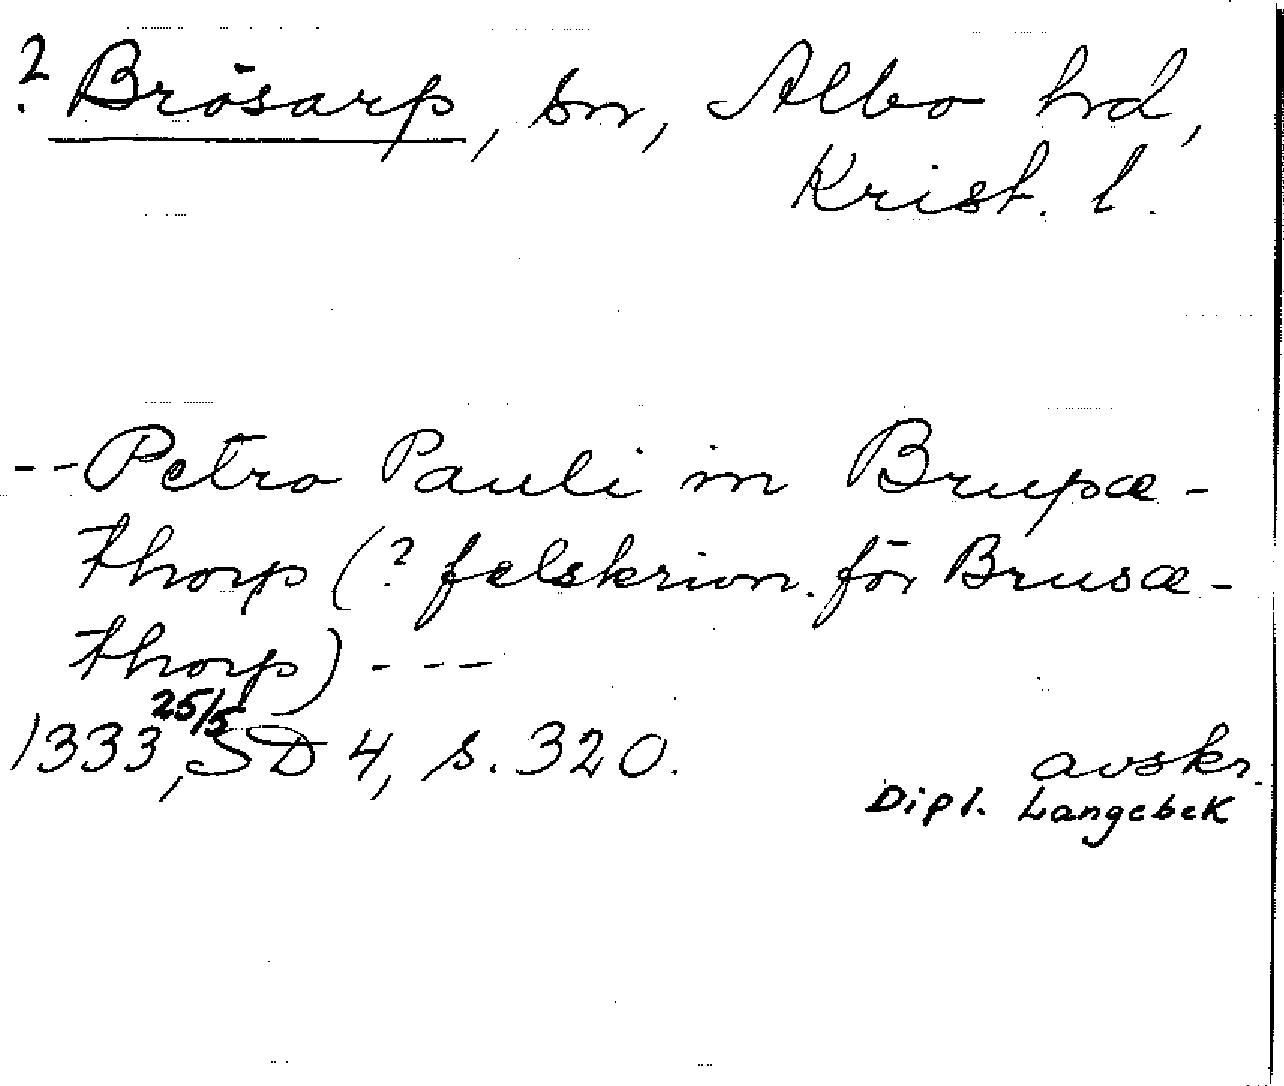 ? Brösarp, sn, Albo hd,
Krist. l.
-- Petro Pauli in Brupæ-
thorp (? felskrivn. för Brusæ-
thorp) ---
1333 25/5, SD 4, s. 320.
avskr.
Dipl. Langebek